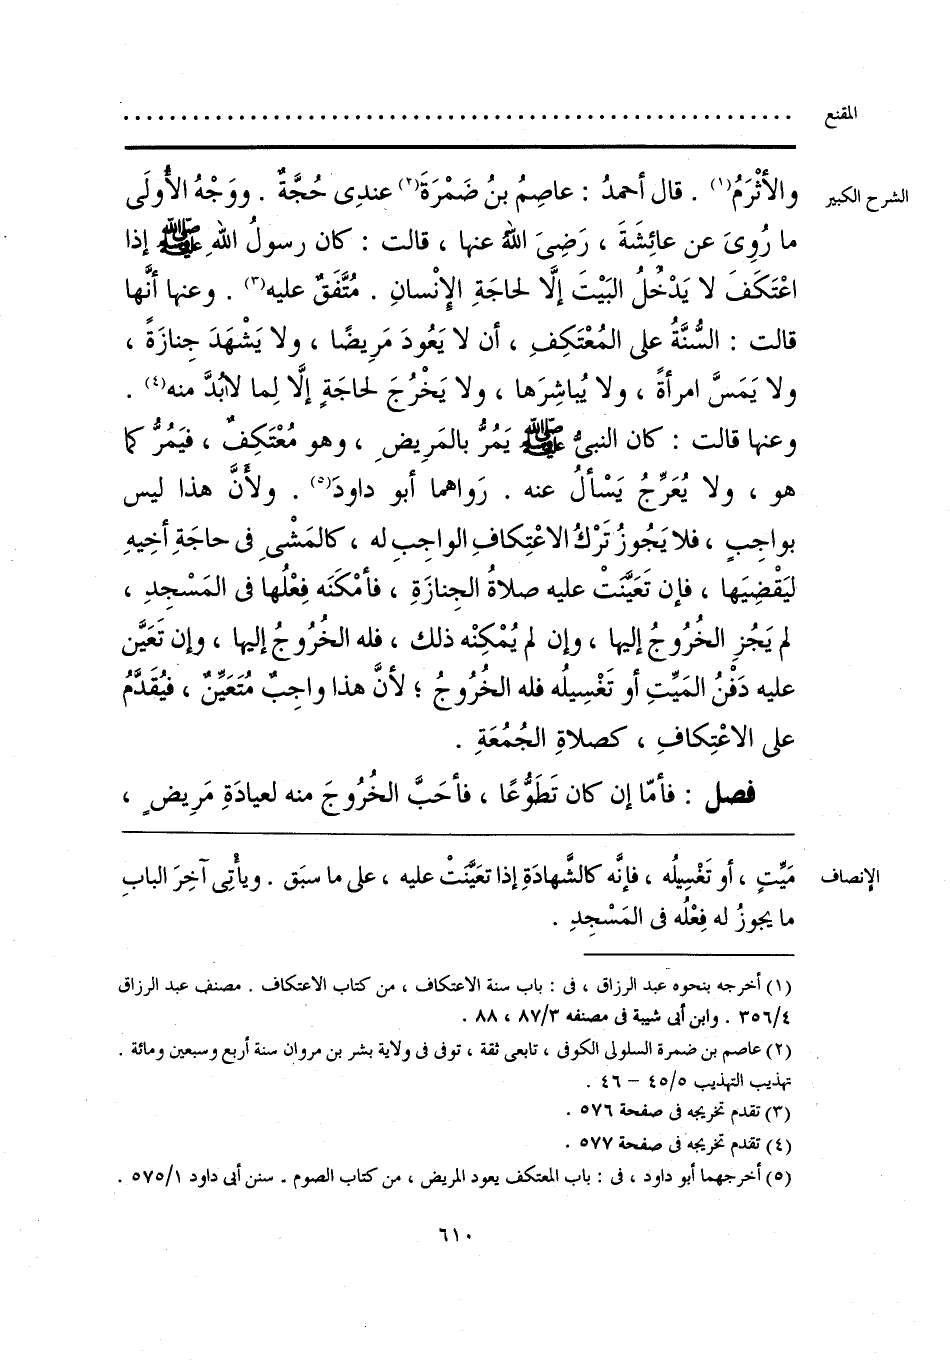 المقنع ........................................................
الشرح الكبير والأَثْرَمُ(١) . قال أحمدُ : عاصِمُ بنُ ضَمْرَةَ(٢) عندِى حُجَّةٌ . ووَجْهُ الأُولَى
ما رُوِىَ عن عائِشَةَ ، رَضِىَ اللهُ عنها ، قالت : كان رسولُ اللهِ ﷺ إذا
اعْتَكَفَ لا يَدْخُلُ البَيْتَ إلَّا لحاجَةِ الإِنْسانِ . مُتَّفَقٌ عليه(٣) . وعنها أنَّها
قالت : السُّنَّةُ على المُعْتَكِفِ ، أن لا يَعُودَ مَرِيضًا ، ولا يَشْهَدَ جِنازَةً ،
ولا يَمَسَّ امرأةً ، ولا يُباشِرَها ، ولا يَخْرُجَ لحاجَةٍ إلَّا لِما لابُدَّ منه(٤) .
وعنها قالت : كان النبىُّ ﷺ يَمُرُّ بالمَرِيضِ ، وهو مُعْتَكِفٌ ، فيَمُرُّ كما
هو ، ولا يُعَرِّجُ يَسْألُ عنه . رَواهما أبو داودَ(٥) . ولأَنَّ هذا ليس
بواجِبٍ ، فلا يَجُوزُ تَرْكُ الاعْتِكافِ الواجِبِ له ، كالمَشْىِ فى حاجَةِ أخِيهِ
ليَقْضِيَها ، فإن تَعَيَّنَتْ عليه صلاةُ الجِنازَةِ ، فأمْكَنَه فِعْلُها فى المَسْجِدِ ،
لم يَجُزِ الخُرُوجُ إليها ، وإن لم يُمْكِنْه ذلك ، فله الخُرُوجُ إليها ، وإن تَعَيَّن
عليه دَفْنُ المَيِّتِ أو تَغْسِيلُه فله الخُرُوجُ ؛ لأنَّ هذا واجِبٌ مُتَعَيِّنٌ ، فيُقَدَّمُ
على الاعْتِكافِ ، كصلاةِ الجُمُعَةِ .
فصل : فأمّا إن كان تَطَوُّعًا ، فأحَبَّ الخُرُوجَ منه لعيادَةِ مَرِيضٍ ،
الإنصاف مَيِّتٍ ، أو تَغْسِيلُه ، فإنَّه كالشَّهادَةِ إذا تعَيَّنَتْ عليه ، على ما سبَق . ويأْتِى آخِرَ البابِ
ما يجوزُ له فِعْلُه فى المَسْجِدِ .
(١) أخرجه بنحوه عبد الرزاق ، فى : باب سنة الاعتكاف ، من كتاب الاعتكاف . مصنف عبد الرزاق
٣٥٦/٤ . وابن أبى شيبة فى مصنفه ٨٧/٣ ، ٨٨ .
(٢) عاصم بن ضمرة السلولى الكوفى ، تابعى ثقة ، توفى فى ولاية بشر بن مروان سنة أربع وسبعين ومائة .
تهذيب التهذيب ٤٥/٥ – ٤٦ .
(٣) تقدم تخريجه فى صفحة ٥٧٦ .
(٤) تقدم تخريجه فى صفحة ٥٧٧ .
(٥) أخرجهما أبو داود ، فى : باب المعتكف يعود المريض ، من كتاب الصوم . سنن أبى داود ٥٧٥/١ .
٦١٠